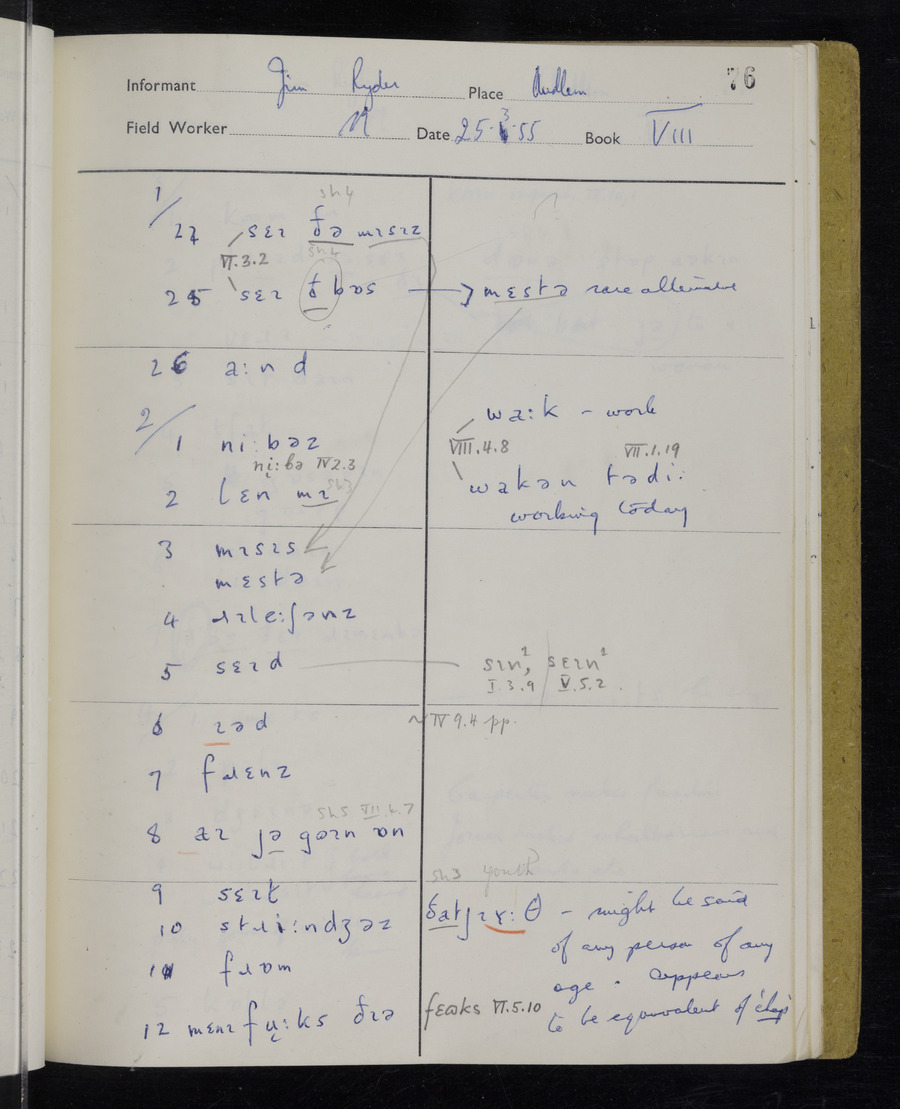 76
Informant Jim Ryder Place Audlem
Field Worker N Date 25·3·55 Book VIII
1/
sh4
24 sɛɪ ðə mɪsɪz
VI.3.2 sh4
25 sɛɪ ð bɒs → mɛstə rare alternative
26 a:nd
2/
wa:k – work
1 ni:bəz VIII.4.8 VII.1.19
ni̜:bə IV 2.3
2 lɛn mɪ sh3 wakən tədi:
working today
3 mɪsɪs
mɛstə
4 ɹɪle:ʃənz
5 sɛɪd sɪn¹, sɛɪn¹
I.3.9 V.5.2.
6 ɪəd ~IV 9.4 pp.
7 fɹɛnz
sh5
8 æɪ jə goɪn ɒn
sh3 youth
9 sɛɪt
10 stɹi:ndʒəz ðat jɪɤ:θ – might be said
of any person of any
11 fɹɒm age. Appears
12 mɛnɪ fu̜:ks ðɪə fɛɷks VI.5.10 to be equivalent of 'chap'